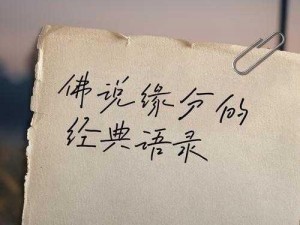 佛说缘分的
经典语录